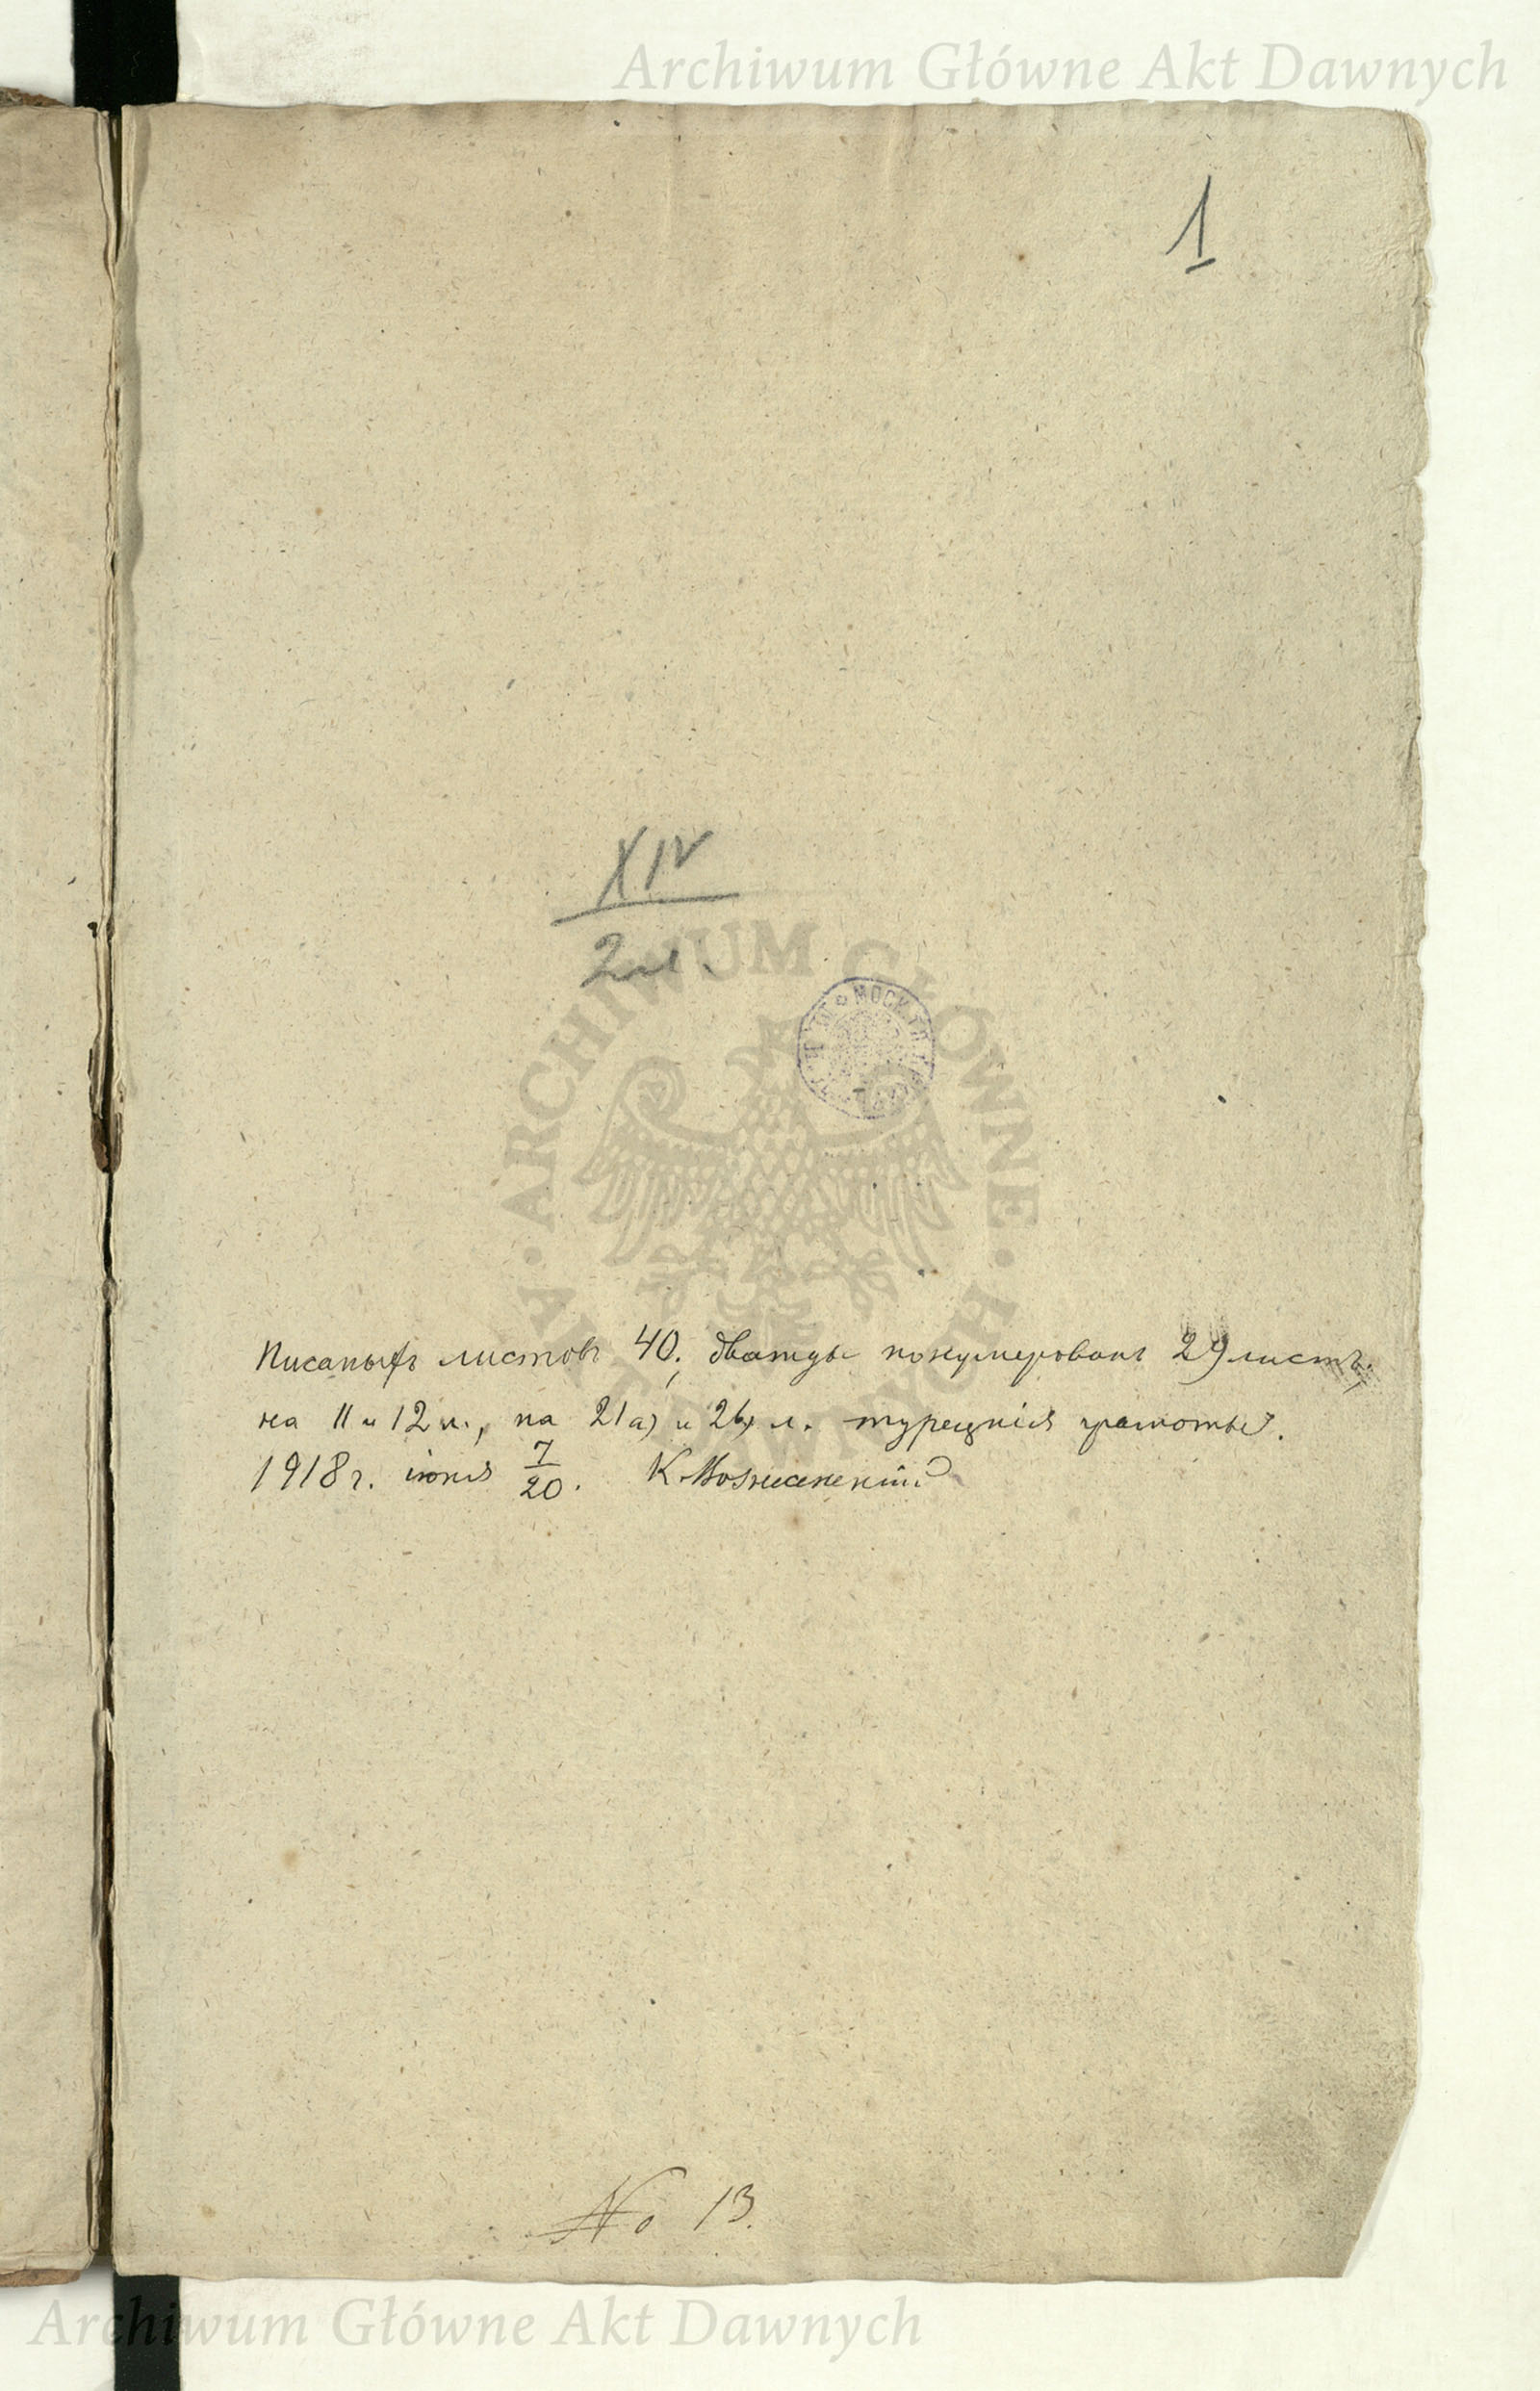 Archiwum Główne Akt Dawnych
1
XIV
2
МОСК. ГЛ.
ARCHIWUM GŁÓWNE AKT DAWNYCH
Писаныхъ листовъ 40; дважды понумерованъ 29 листъ;
на 11 и 12 л., на 21 а) и 2 л. турецкія грамоты.
1918 г. іюня 7/20. К. Вознесенскій
No 13.
Archiwum Główne Akt Dawnych